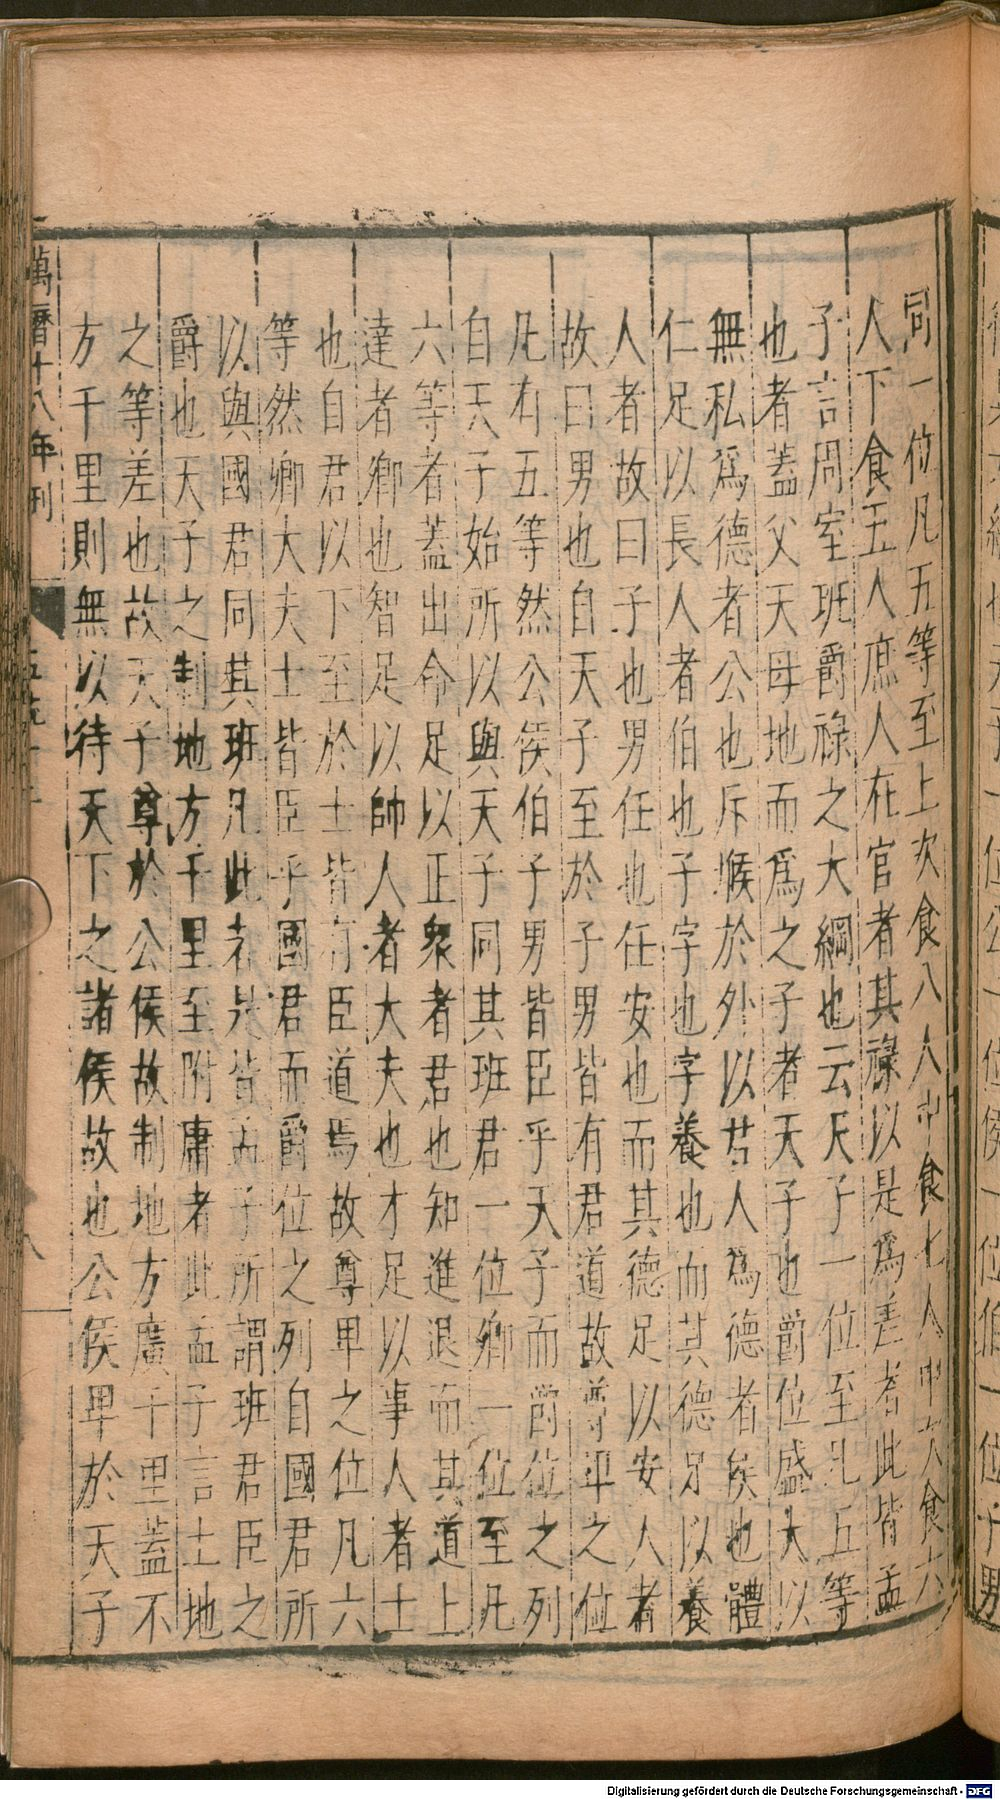 同一位凡五等至上次食八人中食七人中次食六
人下食五人庶人在官者其祿以是爲差者此皆孟
子言周室班爵祿之大綱也云天子一位至凡五等
也者蓋父天母地而爲之子者天子也爵位盛大以
無私爲德者公也斥候於外以君人爲德者侯也體
仁足以長人者伯也子字也字養也而其德足以養
人者故曰子也男任也任安也而其德足以安人者
故曰男也自天子至於子男皆有君道故尊卑之位
凡有五等然公侯伯子男皆臣乎天子而爵位之列
自天子始所以與天子同其班君一位卿一位至凡
六等者蓋出命足以正衆者君也知進退而其道上
達者卿也智足以帥人者大夫也才足以事人者士
也自君以下至於士皆有臣道焉故尊卑之位凡六
等然卿大夫士皆臣乎國君而爵位之列自國君所
以與國君同其班凡此者是皆孟子所謂班君臣之
爵也天子之制地方千里至附庸者此孟子言土地
之等差也故天子尊於公侯故制地方廣千里蓋不
方千里則無以待天下之諸侯故也公侯卑於天子
萬曆十八年刊
八
Digitalisierung gefördert durch die Deutsche Forschungsgemeinschaft - DFG